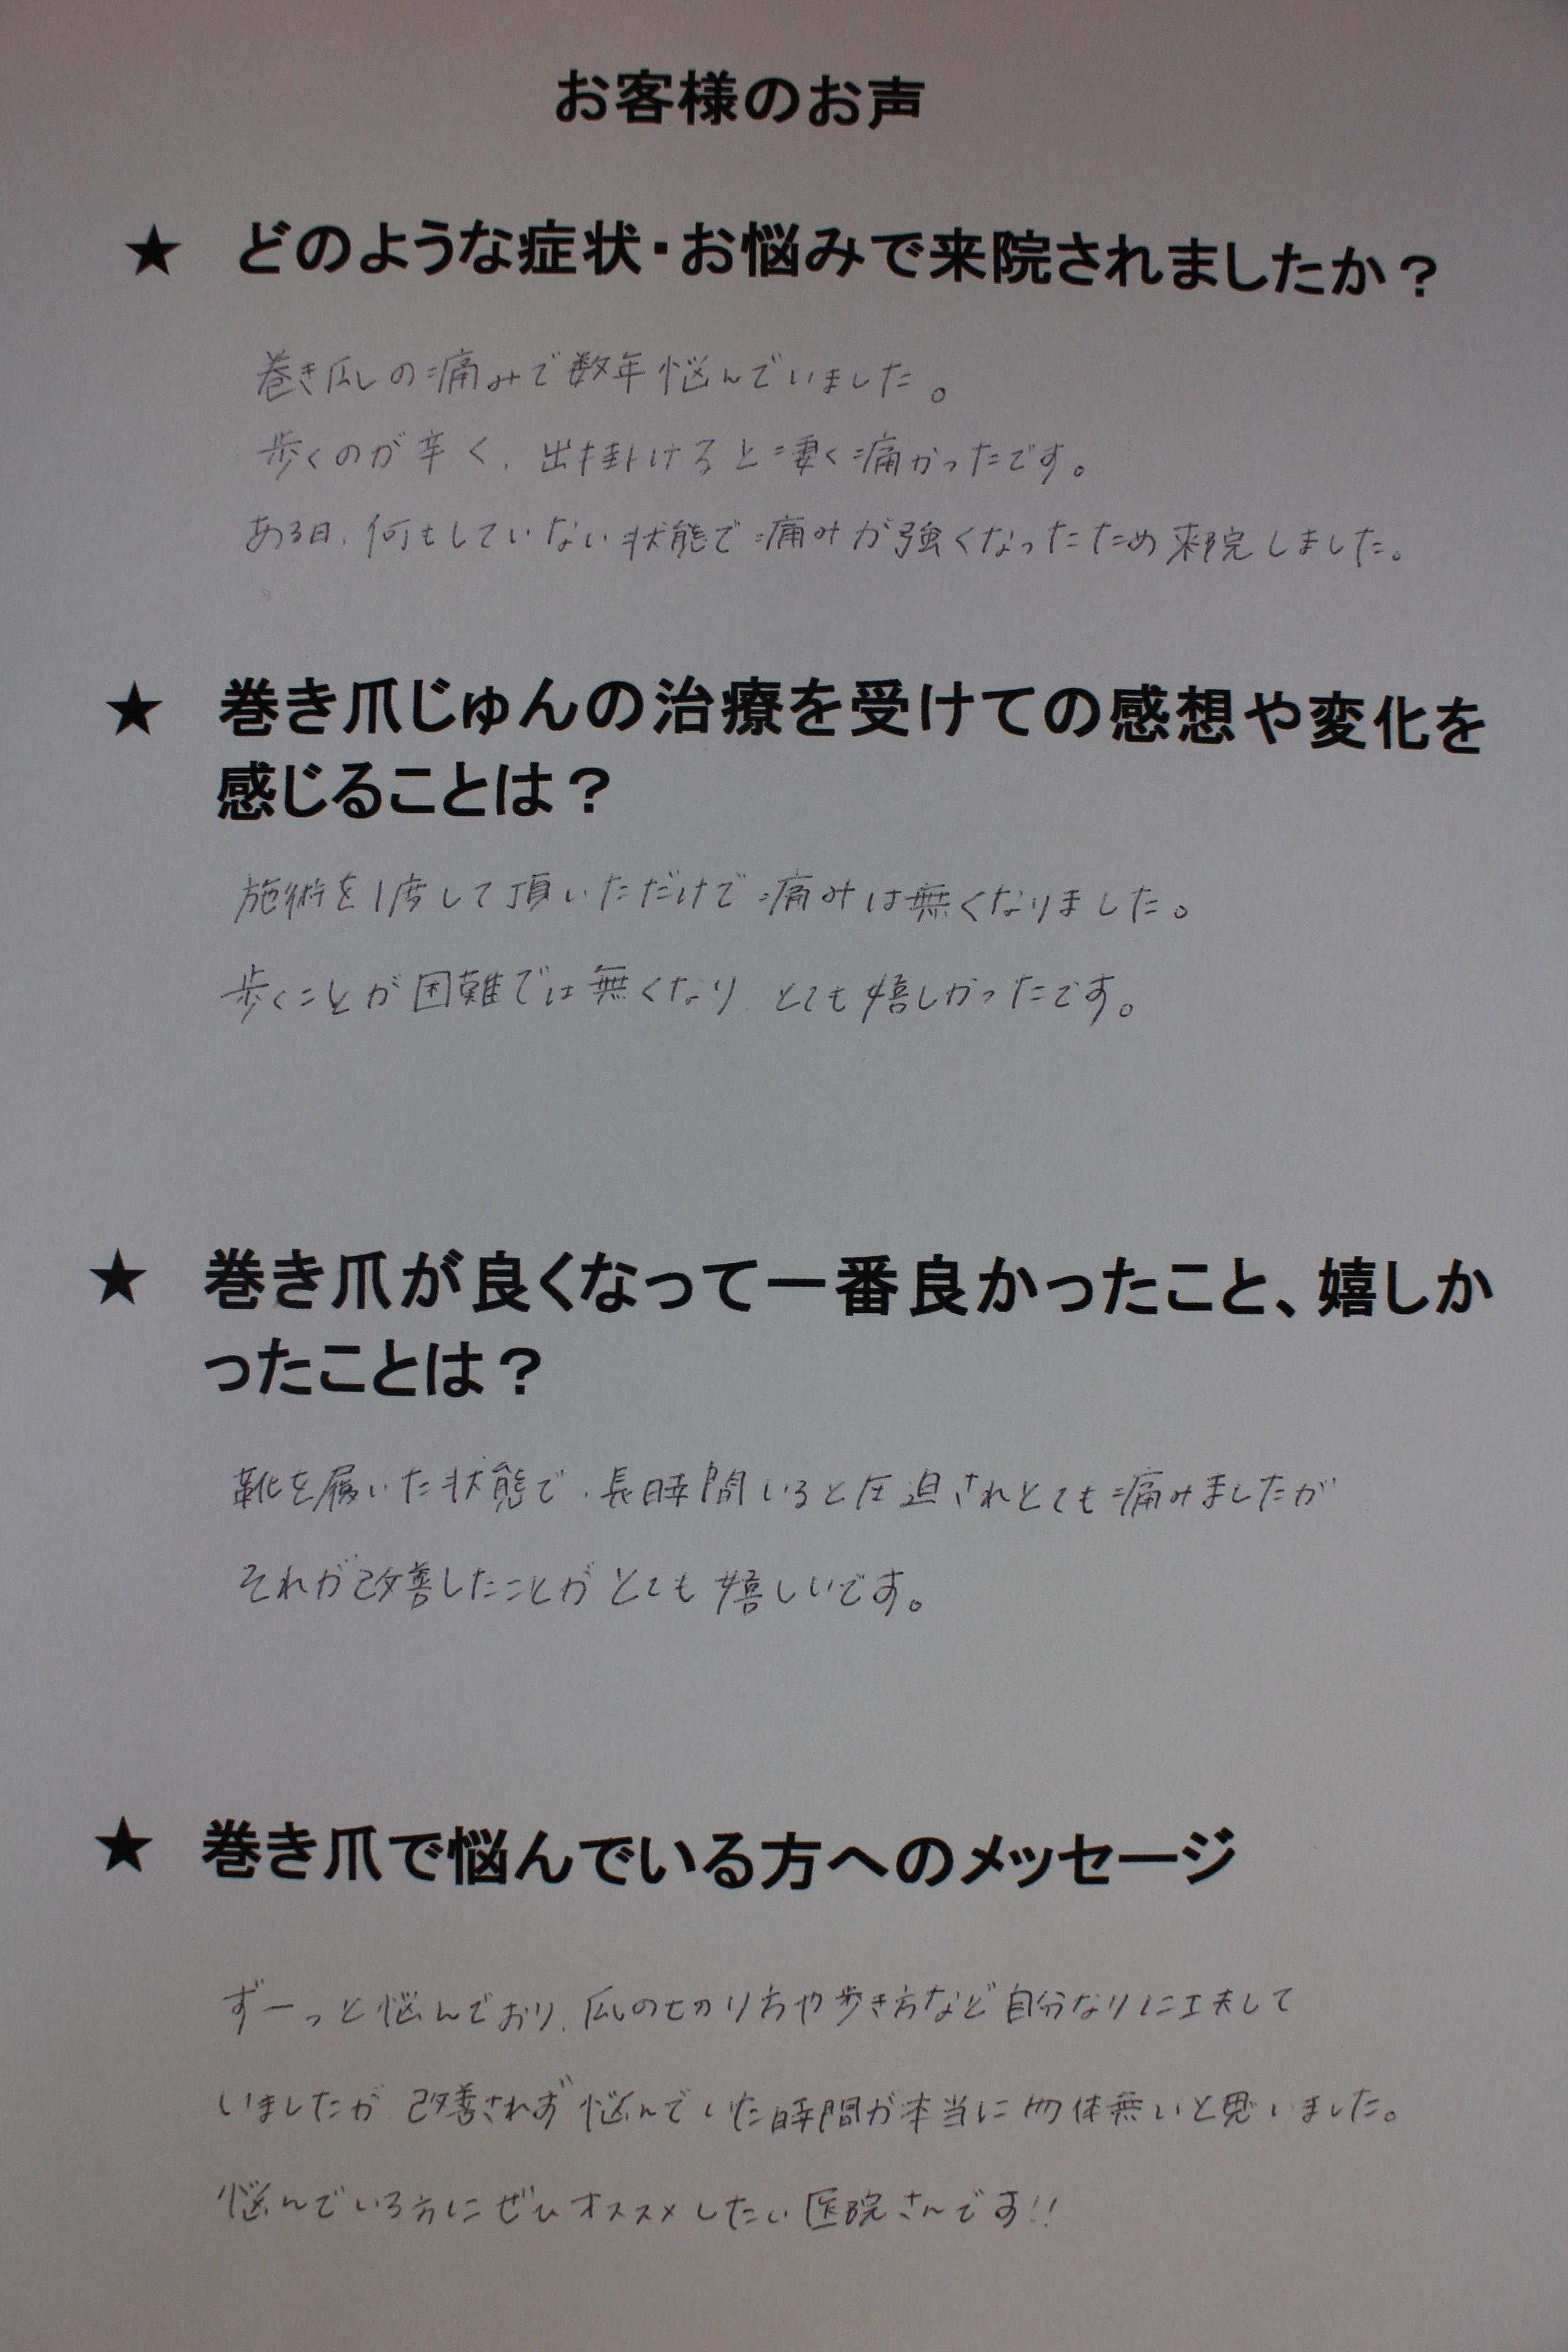 お客様のお声
★ どのような症状・お悩みで来院されましたか？
巻き爪の痛みで数年悩んでいました。
歩くのが辛く、出掛けると凄く痛かったです。
ある日、何もしていない状態で痛みが強くなったため来院しました。
★ 巻き爪じゅんの治療を受けての感想や変化を
感じることは？
施術を1度して頂いただけで痛みは無くなりました。
歩くことが困難では無くなり、とても嬉しかったです。
★ 巻き爪が良くなって一番良かったこと、嬉しか
ったことは？
靴を履いた状態で、長時間いると圧迫されとても痛みましたが
それが改善したことがとても嬉しいです。
★ 巻き爪で悩んでいる方へのメッセージ
ずーっと悩んでおり、爪の切り方や歩き方など自分なりに工夫して
いましたが、改善されず悩んでいた時間が本当に勿体無いと思いました。
悩んでいる方にぜひオススメしたい医院さんです!!